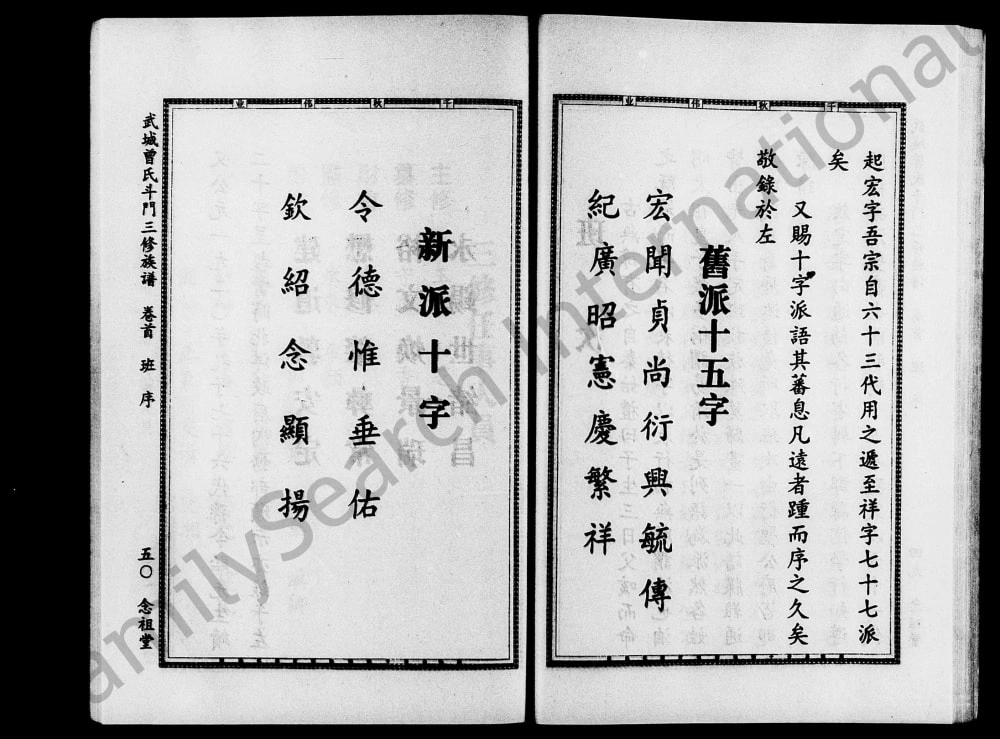 起宏字吾宗自六十三代用之遞至祥字七十七派
矣
又賜十字派語其蕃息凡遠者踵而序之久矣
敬錄於左
舊派十五字
宏聞貞尚衍興毓傳
紀廣昭憲慶繁祥
新派十字
令德惟垂佑
欽紹念顯揚
武城曾氏斗門三修族譜 卷首 班序 五〇 念祖堂
FamilySearch International